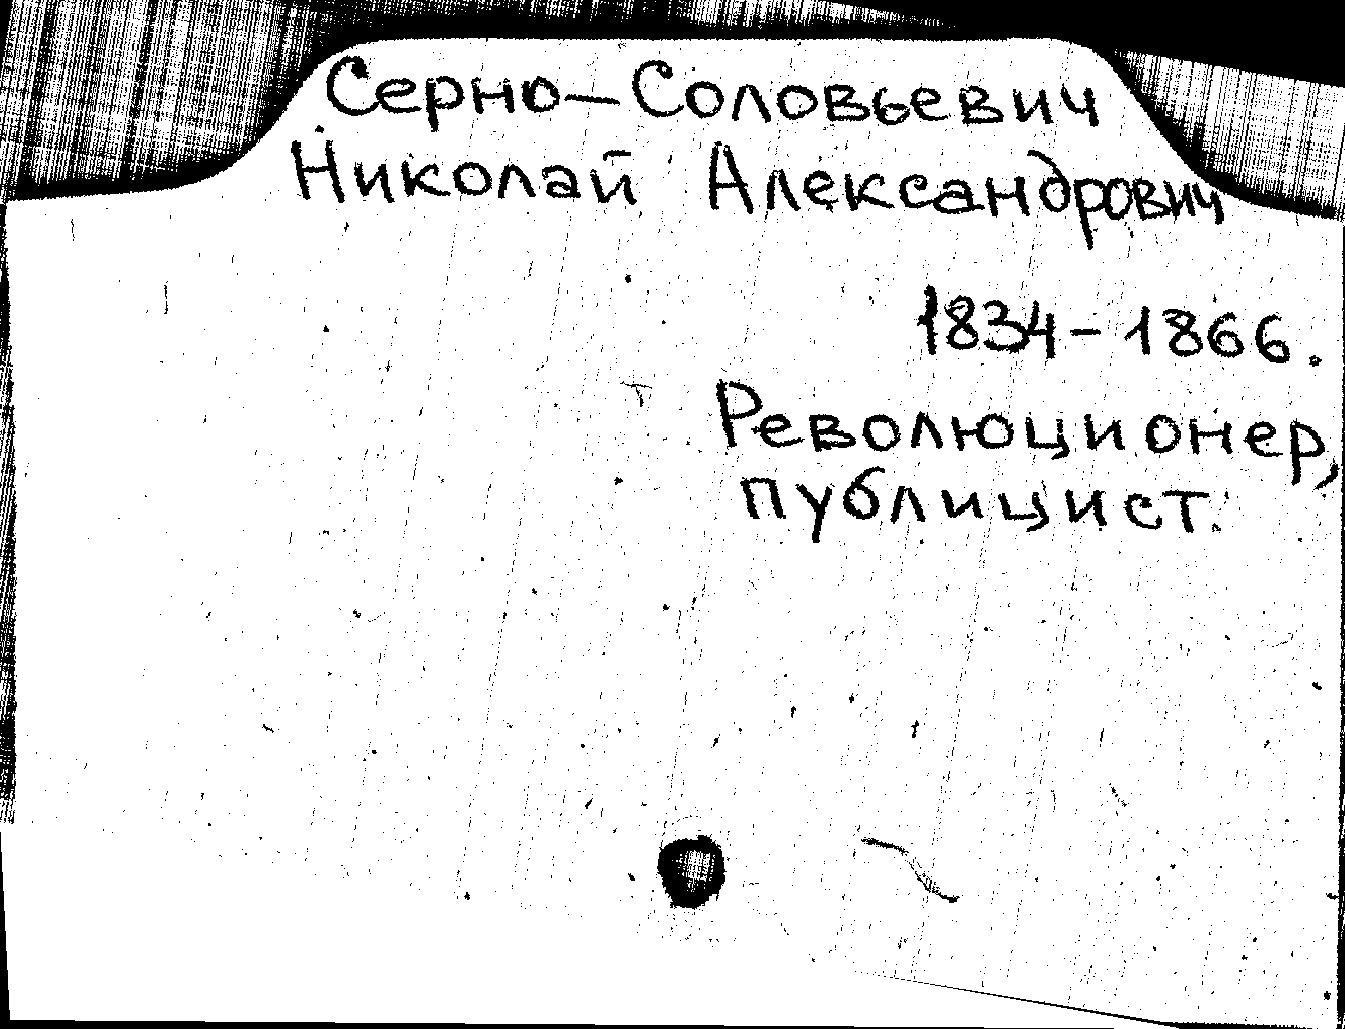 Серно-Соловьевич
Николай Александрович
1834-1866.
Революционер,
публицист.